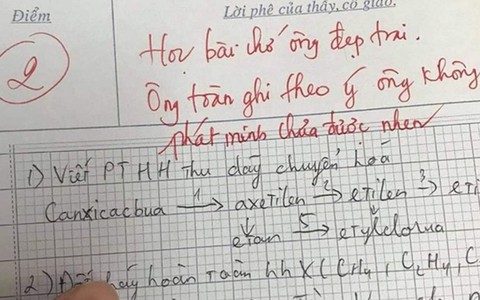 Điểm
Lời phê của thầy, cô giáo
2
Học bài chớ ông đẹp trai.
Ông toàn ghi theo ý ông không
phát minh chưa được nhen
1) Viết PTHH thu dãy chuyển hoá
Canxicacbua 1→ axetilen 2→ etilen 3→ eti
↓ ↓
etan 5→ etylclorua
hoàn toàn hh X (CH4, C2H4, C